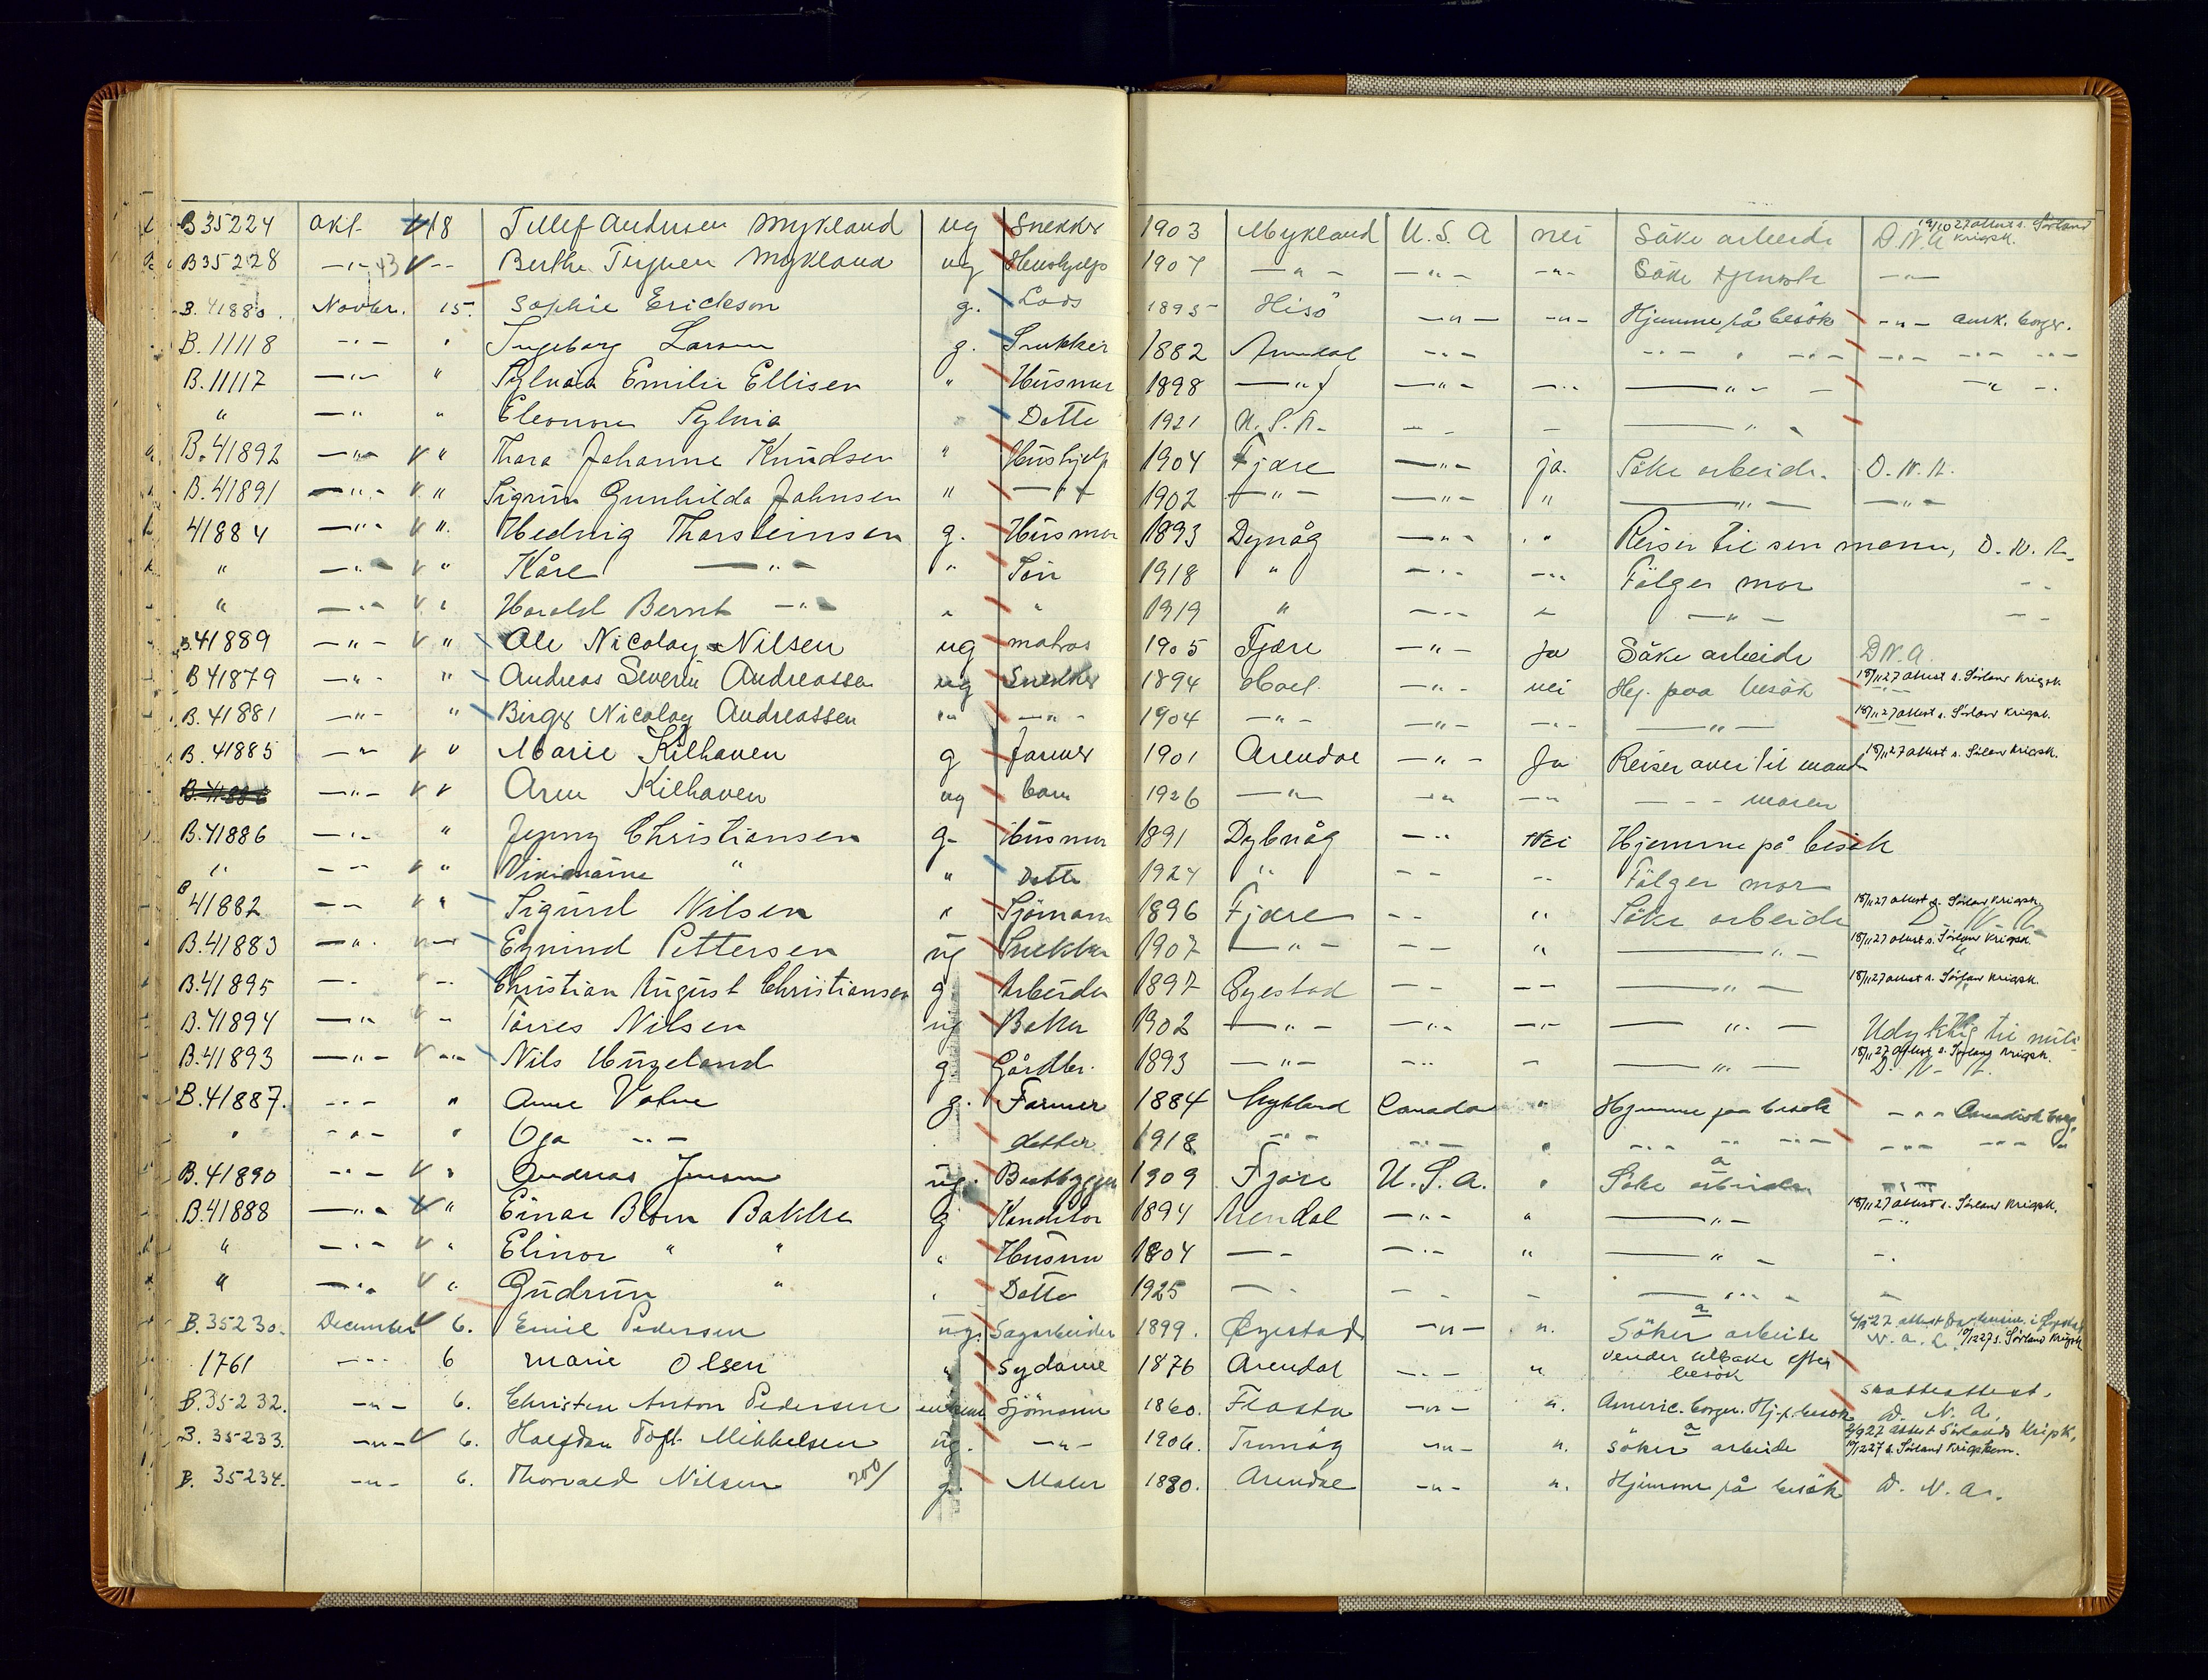 B35224 okt. 18 Tellef Andersen Mykland ug Snekker 1903 Mykland U.S.A nei Söke arbeide D.N.A 19/10 27 attest s. Sörland Krigsk.
B35228 -"- 43 -- Berthe Mykland ug Hushjelp 1907 -"- -"- -"- Söke tjeneste -"-
B.41880. Novbr. 15. Sophie Erickson g. Lods 1895 Hisö -"- -"- Hjemme på besök -"- amk. borger.
B.11118 -"- " Ingeborg Larsen g. Snekker 1882 Arendal -"- -"- " -"- -"- -"- -"-
B.11117 -"- " Sylvia Emilie Ellisen " Husmor 1898 -"- -"- -"- -"- -"-
" -"- " Eleonore Sylvia Datter 1921 U.S.A. - - -"-
B.41892 -"- " Thora Johanne Knudsen " Hushjelp 1904 Fjære -"- ja. Söke arbeide. D.N.A.
B.41891 -"- " Sigrun Gunhilda Johnsen " -"- 1902 -"- -"- " -"- -"-
41884 -"- " Hedvig Thorsteinsen g. Husmor 1893 Dypvåg -"- " Reiser til sin mann, D.N.A.
" -"- " Kåre -"- " Sön 1918 " -"- -"- Fölger mor -
" -"- " Harald Bernt -"- " " 1919 " -"- " -"- --
B.41889 -"- " Ole Nicolay Nilsen ug matros 1905 Fjære -"- Ja Söke arbeide D N.A.
B 41879 -"- " Andreas Severin Andreassen ug Snekker 1894 Holt. -"- nei Hj. paa besök 18/11 27 attest s. Sörland Krigsk.
B. 41881 -"- " Birger Nicolay Andreassen -"- -"- 1904 -"- -"- -"- -"- 18/11 27 attest s. Sörland Krigsk.
B. 41885 -"- " Marie Kilhaven g Farmer 1901 Arendal -"- Ja Reiser over til mand 18/11 27 attest s. Sörland Krigsk.
B. 41886 -"- " Arne Kilhaven ug barn 1926 -"- -"- -"- --- moren
B.41886 -"- " Jenny Christiansen g- Husmor 1891 Dybvåg -"- Nei Hjemme på besök
" -- " " " Datter 1924 " -- -- Fölger mor
B 41882 -- " Sigurd Nilsen " Sjömann 1896 Fjære -- " Söke arbeide 18/11 27 attest s. Sörland Krigsk. D. N. A.
B.41883 -"- -- Eyvind Pettersen ug Snekker 1907 -"- -- " -"- 18/11 27 attest s. Sörland Krigsk.
B.41895 -- -- Christian August Christiansen g. Arbeider 1897 Öyestad -- -- -"- 18/11 27 attest s. Sörland Krigsk.
B.41894 -"- - Torres Nilsen ug Baker 1902 -"- -"- -"- -"- Udyktig til
B.41893 -"- -"- Nils Hugeland g. Gårdbr. 1893 -"- -"- - -"- 18/11 27 attest s. Sörland Krigsk. D. N. A.
B.41887. -"- " Anne Valne g. Farmer 1884 Mykland Canada " Hjemme paa besök -"- Canadisk borg.
" -"- " Oga -"- . datter 1918 -"- -"- " -"- -"- -"- -"- -"- "
B.41890 -"- " Andreas Jensen ug. Baatbygger 1909 Fjære U.S.A. " Söke arbeide -"-
B.41888 -"- " Einar Blom Bakke g Konditor 1894 Arendal -"- " -"- 18/11 27 attest s. Sörland Krigsk.
" -"- " Elinor " " " Husmor 1804 -- -"- " -"- -"
" -"- " Gudrun " " Datter 1925 -- -- - -"- -
B.35230. December 6. Emil Pedersen ug. Sagarbeider 1899. Öyestad -"- ". Söker arbeide N.A. s. Sörland Krigsk
1761 -"- 6 Marie Olsen " Sydame 1876 Arendal -"- " vender tilbake efter besök
B.35232. -"- 6. Christen Anton Pedersen enkem. Sjömann 1860. Flosta -"- ". Americ. borger. Hj. p. besök skatteattest. D. N. A.
B. 35233. -"- 6. Halfdan Toft Mikkelsen ug. -"- 1906. Tromöy -"- ". söker arbeide attest Sörlands Krigsk. s. Sörland Krigskom.
B. 35234. -"- 6. Thorvald Nilsen 200/ g. Maler 1880. Arendal -"- ". Hjemme på besök D. N. A.